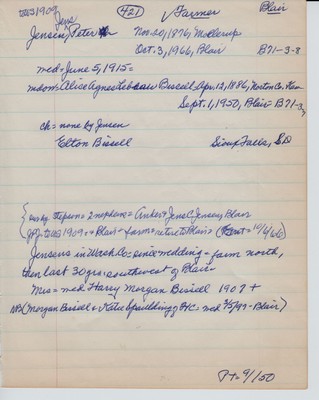 to US 1909 Jens (421) Farmer Blair
Jensen, Peter Nov. 20, 1876, Mollerup
Oct. 3, 1966, Blair B71-3-8
med = June 5, 1915 =
mdom Alice Agnes Bissell Apr. 12, 1886, Norton Co. Kan
Sept. 1, 1950, Blair B71-3-7
ch = none by Jensen
Elton Bissell Sioux Falls, SD
stepson = 2 nephews = Anker + Jens C. Jensen, Blair
to US 1909 + Blair + farm = retire to Blair = (Ent = 10/6/66)
Jensens in Wash Co = since wedding = farm north,
then last 30 yrs. southwest of Blair =
Mrs = med Harry Morgan Bissell 1907 +
NB (Morgan Bissell + Katie Spaulding of HC = med 3/5/99 - Blair)
Pt = 9/1/50